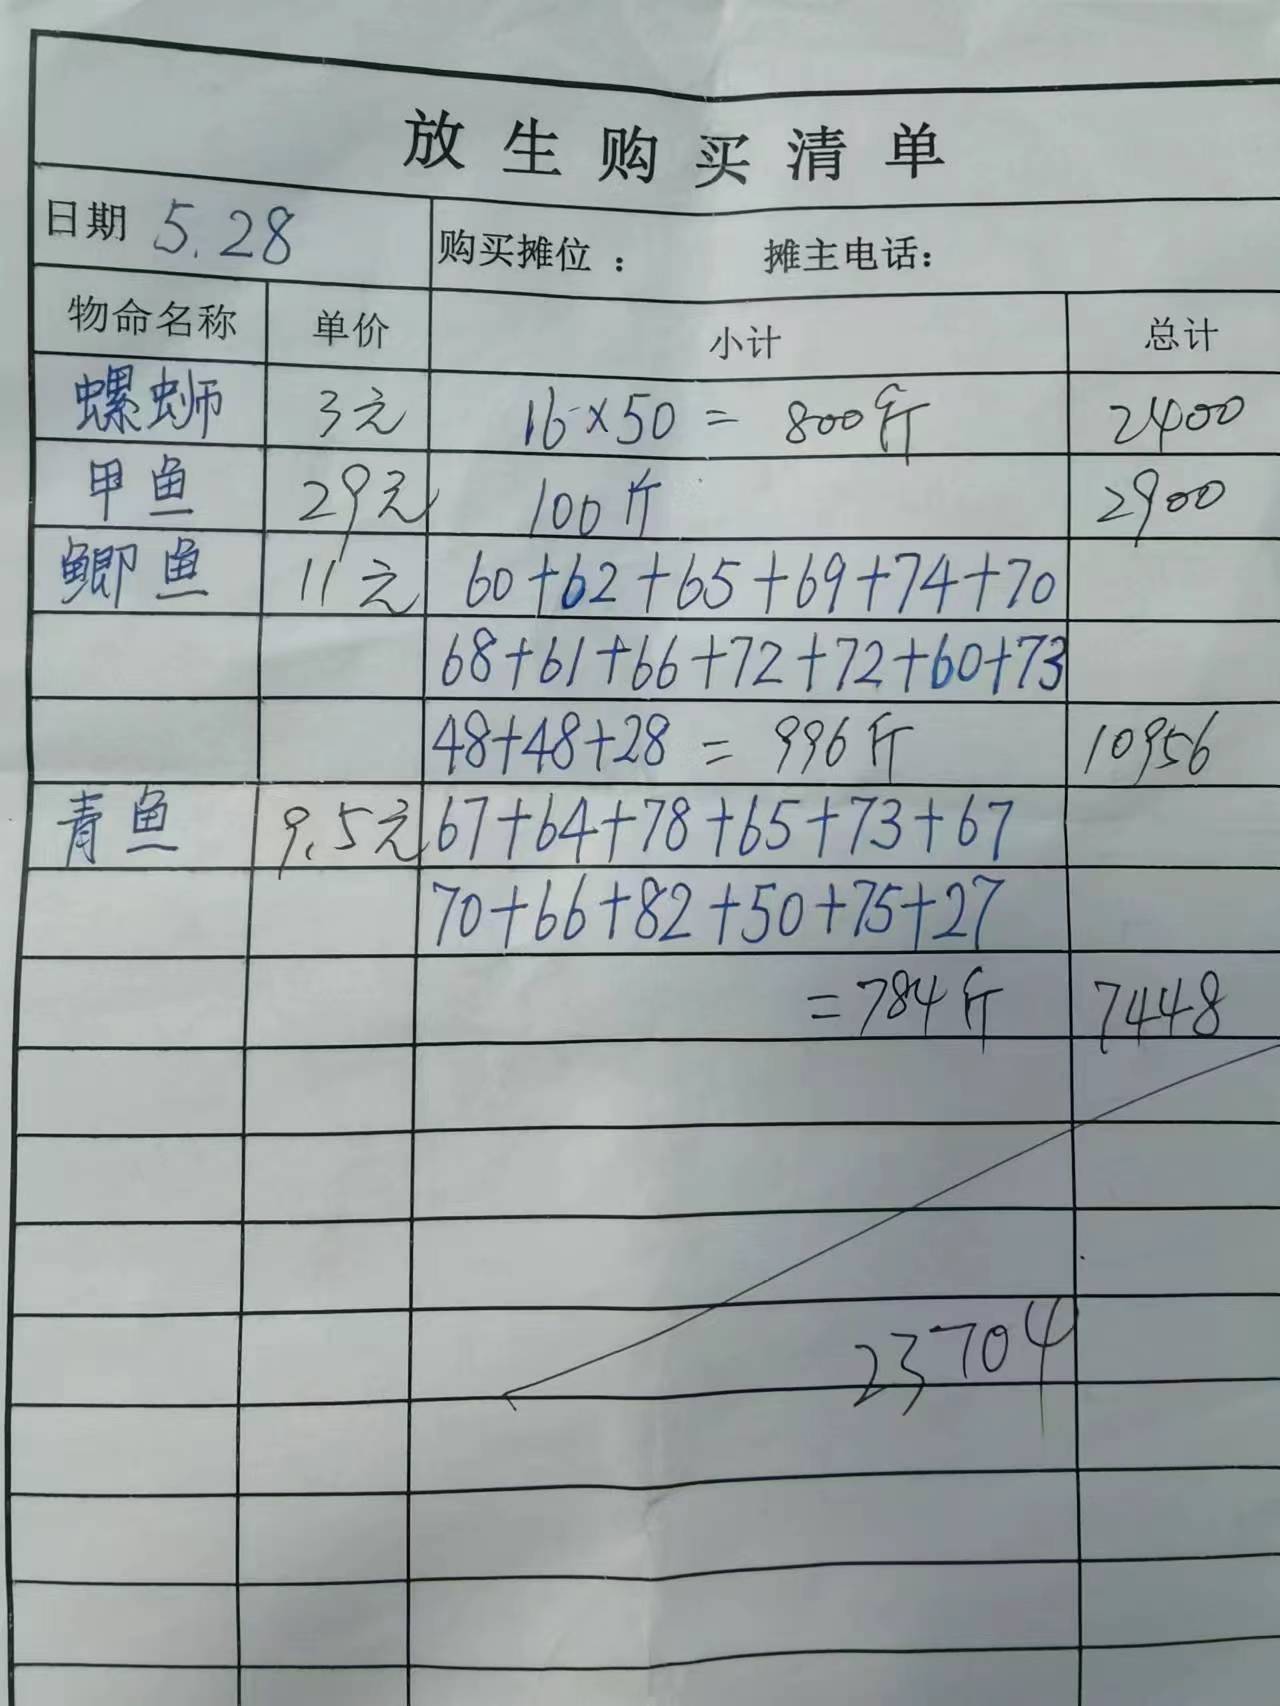 放生购买清单
日期 5.28 购买摊位： 摊主电话：
物命名称 单价 小计 总计
螺蛳 3元 16×50 = 800斤 2400
甲鱼 29元 100斤 2900
鲫鱼 11元 60+62+65+69+74+70
68+61+66+72+72+60+73
48+48+28 = 996斤 10956
青鱼 9.5元 67+64+78+65+73+67
70+66+82+50+75+27
=784斤 7448
23704